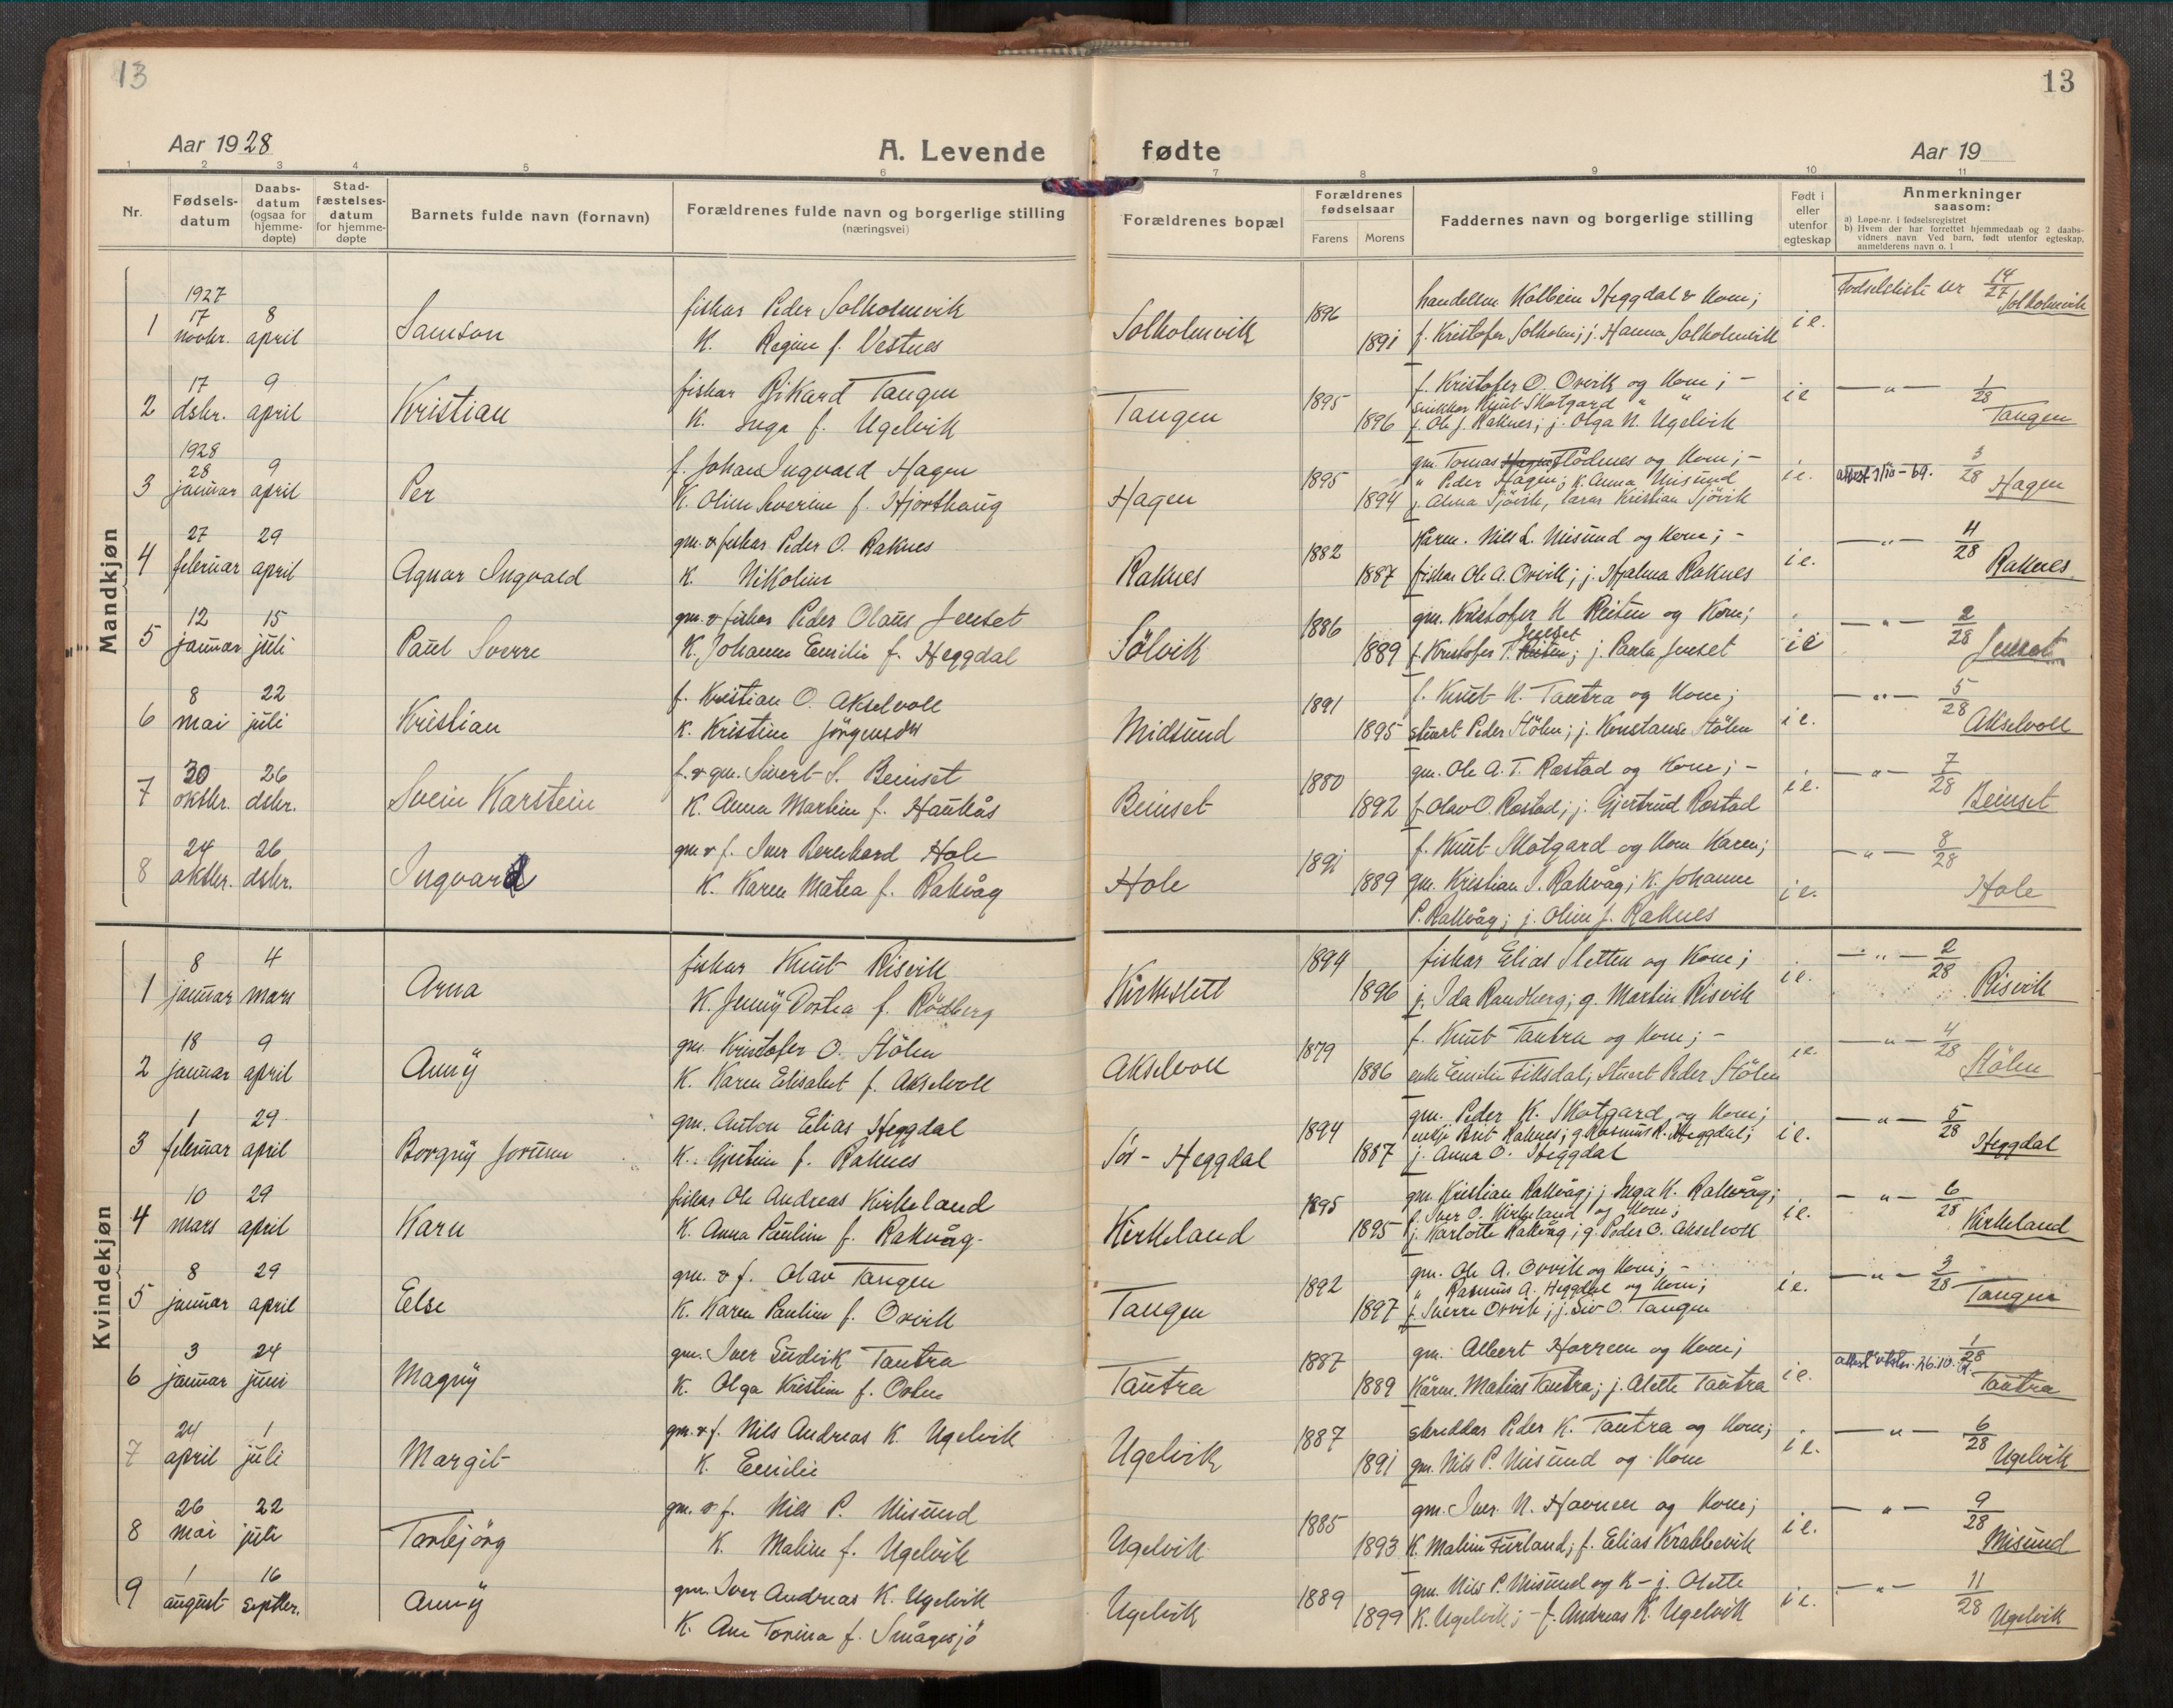 13
13
Aar 1928
A. Levende fødte
Aar 19
1 2 3 4 5 6 7 8 9 10 11
Nr.
Fødsels-
datum
Daabs-
datum
(ogsaa for
hjemme-
døpte)
Stad-
fæstelses-
datum
for hjemme-
døpte
Barnets fulde navn (fornavn)
Forældrenes fulde navn og borgerlige stilling
(næringsvei)
Forældrenes bopæl
Forældrenes
fødselsaar
Farens Morens
Faddernes navn og borgerlige stilling
Født i
eller
utenfor
egteskap
Anmerkninger
saasom:
a) Løpe-nr. i fødselsregistret
b) Hvem der har forrettet hjemmedaab og 2 daabs-
vidners navn Ved barn, født utenfor egteskap,
anmelderens navn o. l
Mandkjøn
1 1927 17 novbr. 8 april Samson
fiskar Peder Solholmvik
K. Regine f. Vestnes
Solholmvik 1896 1891
handelsm Kolbein Heggdal & Kone;
f. Kristofer Solholm; j. Hanna Solholmvik
i e. Fødselsliste nr 14/27 Solholmvik
2 17 dsbr. 9 april Kristian
fiskar Rikard Tangen
K. Inga f. Ugelvik
Tangen 1895 1896
f. Kristofer O. Orvik og Kone; -
snikkar Knut Skotgard " "
f. Ole J. Raknes; j. Olga N. Ugelvik
i e — " — 1/28 Tangen
3 1928 28 januar 9 april Per
f. Johan Ingvald Hagen
K. Oline Severine f. Hjorthaug
Hagen 1895 1894
gm. Tomas Flödnes og Kone; -
" Peder Hagen; K. Anna Misund
j. Alma Sjövik, lærar Kristian Sjövik
i e. 3/28 Hagen
4 27 februar 29 april Agnar Ingvald
gm. & fiskar Peder O. Raknes
K. Nikoline
Raknes 1882 1887
Kårm. Nils L. Misund og Kone; -
fiskar Ole A. Orvik; j. Hjalma Raknes
i e. — " — 4/28 Raknes
5 12 januar 15 juli Paul Sverre
gm. & fiskar Peder Olaus Jenset
K. Johanne Emilie f. Heggdal
Sölvik 1886 1889
gm. Kristofer K Reiten og Kone;
f. Kristofer P. Jenset; j. Paula Jenset
i e — " — 2/28 Jenset
6 8 mai 22 juli Kristian
f. Kristian O. Akselvoll
K. Kristine Jörgensdtr
Midsund 1891 1895
f. Knut K. Tautra og Kone;
stuert Peder Stölen; j. Konstanse Stölen
i e. — " — 5/28 Akselvoll
7 30 oktbr. 26 dsbr. Svein Karstein
f. & gm. Sivert S. Beinset
K. Anna Martine f. Haukås
Beinset 1880 1892
gm. Ole A. T. Rastad og Kone; -
f. Olav O. Rastad; j. Gjertrud Rastad
i e. — " — 7/28 Beinset
8 24 oktbr. 26 dsbr. Ingvard
gm & f. Iver Bernhard Hole
K. Karen Matea f. Rakvåg
Hole 1891 1889
f. Knut Skotgard og Kone Karen;
gm. Kristian S. Rakvåg; K. Johanne
P. Rakvåg; j. Oline J. Raknes
i e. — " — 8/28 Hole
Kvindekjøn
1 8 januar 4 mars Arna
fiskar Knut Risvik
K. Jenny Dortea f. Rödberg
Kirkeslett 1894 1896
fiskar Elias Sletten og Kone;
j. Ida Randberg; g. Martin Risvik
i e. — " — 2/28 Risvik
2 18 januar 9 april Anny
gm. Kristofer O. Stölen
K. Karen Elisabet f. Akselvoll
Akselvoll 1879 1886
f. Knut Tautra og Kone; -
enke Emilie Fillsdal, Stuert Peder Stölen
i e. — " — 4/28 Stölen
3 1 februar 29 april Borgny Jorunn
gm. Anton Elias Heggdal
K. Gjertine f. Raknes
Sör-Heggdal 1894 1887
gm. Peder K. Skotgard og Kone;
enkje Brit Raknes; g. Rasmus K. Heggdal;
j. Anna O. Heggdal
i e. — " — 5/28 Heggdal
4 10 mars 29 april Karn
fiskar Ole Andreas Kirkeland
K. Anna Pauline f. Rakvåg
Kirkeland 1895 1895
gm. Kristian Rakvåg; j Inga K. Rakvåg;
f. Iver O. Kirkeland og Kone;
j. Karlotte Rakvåg; g. Peder O. Akselvoll
i e. — " — 6/28 Kirkeland
5 8 januar 29 april Else
gm. & f. Olav Tangen
K. Karen Pauline f. Orvik
Tangen 1892 1897
gm. Ole A. Orvik og Kone; -
" Rasmus A. Heggdal og Kone;
f. Sverre Orvik; j. Siv O. Tangen
i e. — " — 3/28 Tangen
6 3 januar 24 juni Magny
gm. Iver Gudvik Tautra
K. Olga Kristine f.
Tautra 1887 1889
gm. Albert Horrem og Kone;
Kårm. Matias Tautra; j. Alette Tautra
i e. 1/28 Tautra
7 24 april 1 juli Margit
gm. & f. Nils Andreas K. Ugelvik
K. Emilie
Ugelvik 1887 1891
skreddar Peder K. Tautra og Kone;
gm. Nils P. Misund og Kone
i e. — " — 6/28 Ugelvik
8 26 mai 22 juli Torbjörg
gm. & f. Nils P. Misund
K. Maline f. Ugelvik
Ugelvik 1885 1893
gm. Iver N. Havnen og Kone;
K. Maline Furland; f. Elias Krabbevik
i e. — " — 9/28 Misund
9 1 august 16 septbr. Anny
gm. Iver Andreas K. Ugelvik
K. Ane Torina f. Smågesjö
Ugelvik 1889 1899
gm. Nils P. Misund og K - j. Olette
K. Ugelvik; - f. Andreas K. Ugelvik
i e. — " — 11/28 Ugelvik